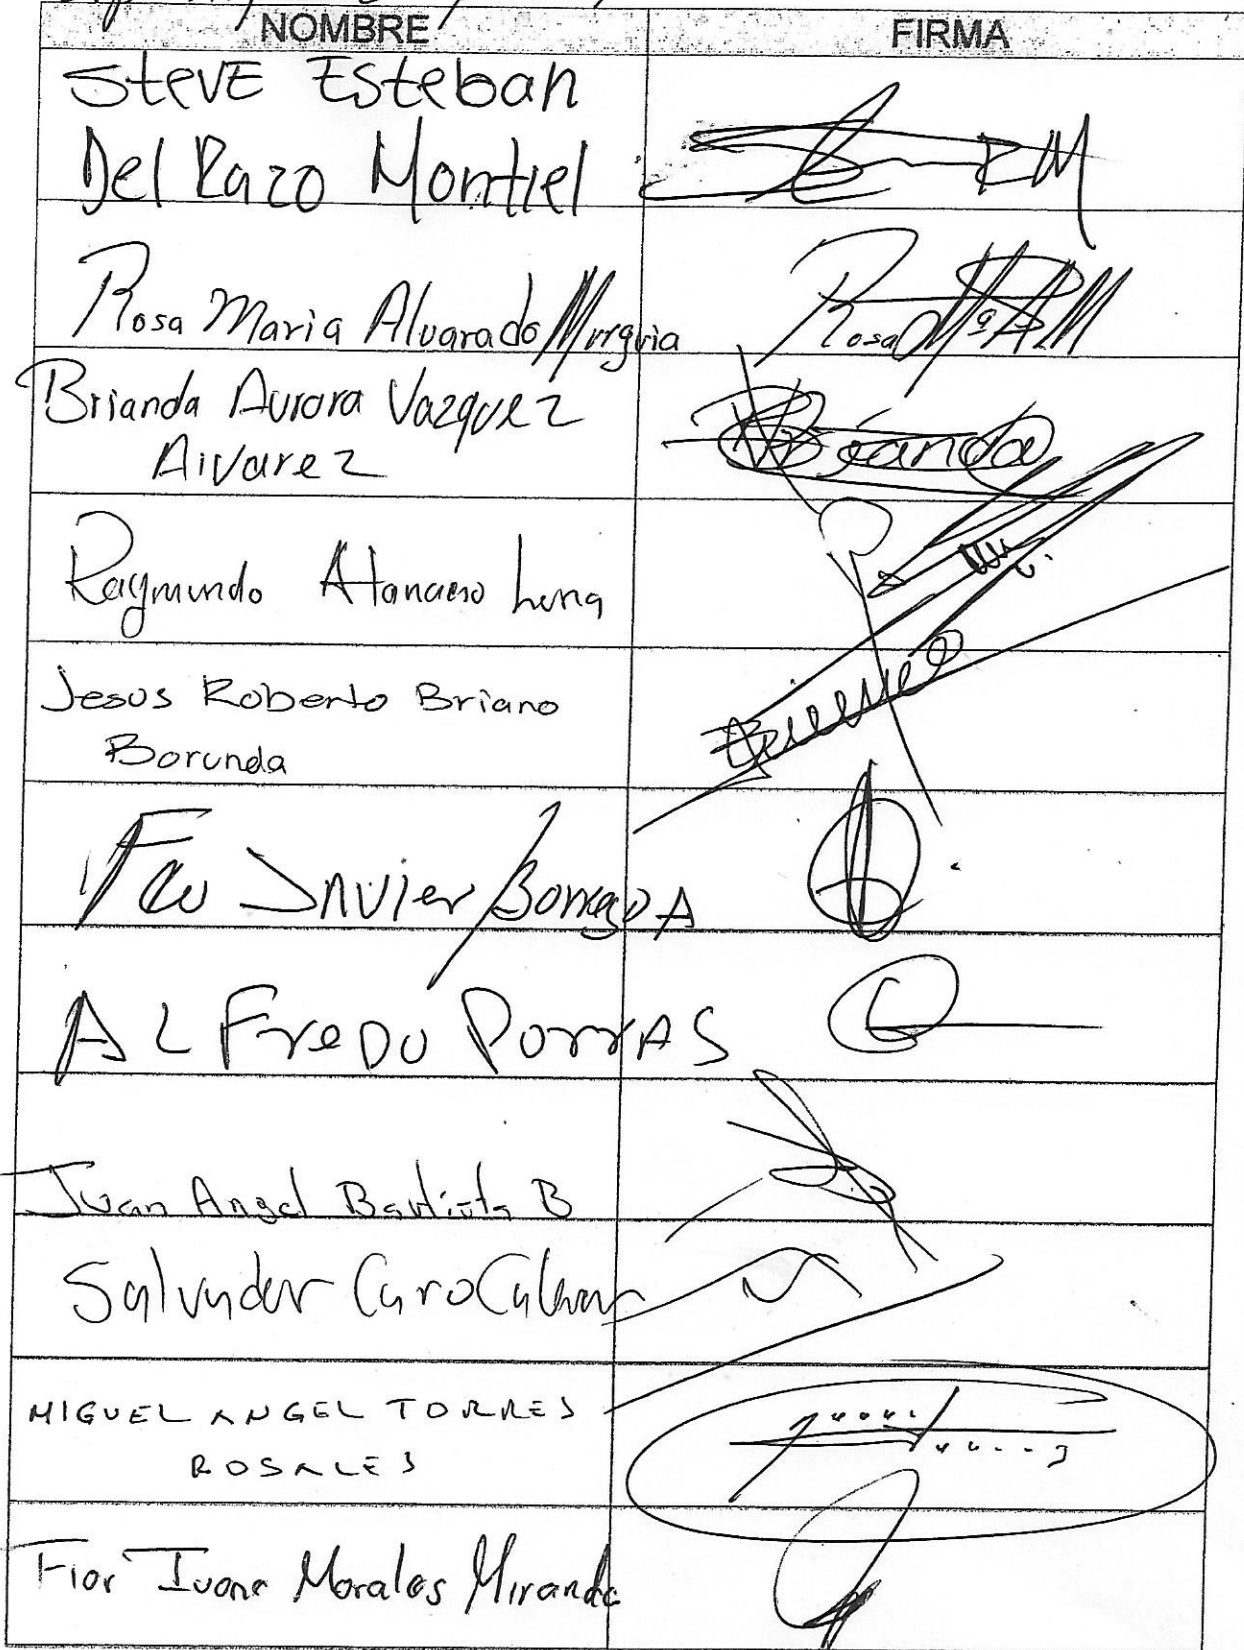 NOMBRE FIRMA
Steve Esteban
Del Razo Montiel RM
Rosa Maria Alvarado Murguia Rosa Mª AM
Brianda Aurora Vazquez Brianda
Alvarez
Raymundo Atanacio Luna
Jesus Roberto Briano
Borunda
Fco Javier Borrego A
ALFredo PorrAS
Juan Angel Bautista B
Salvador Caro
MIGUEL ANGEL TORRES
ROSALES
Flor Ivone Morales Miranda